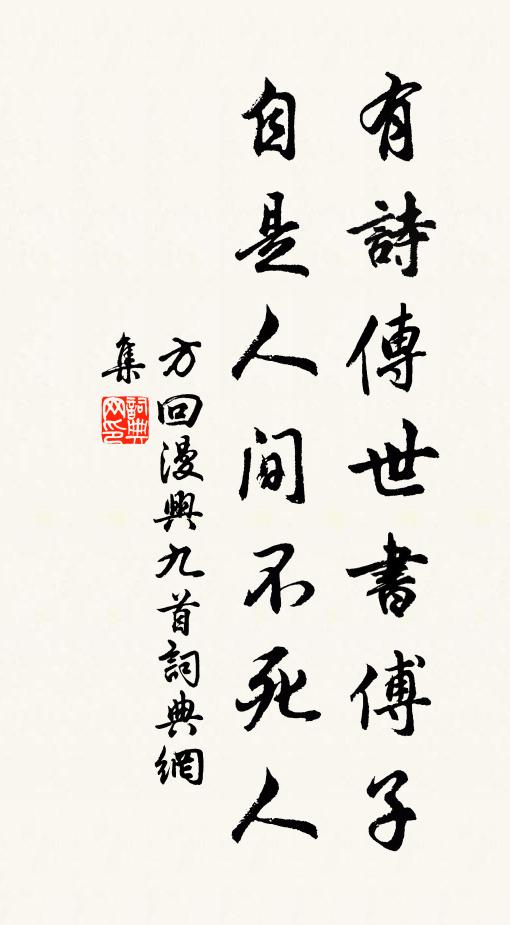 有詩傳世書傅子
自是人間不死人
方回漫興九首詞典網
集
詞典网印